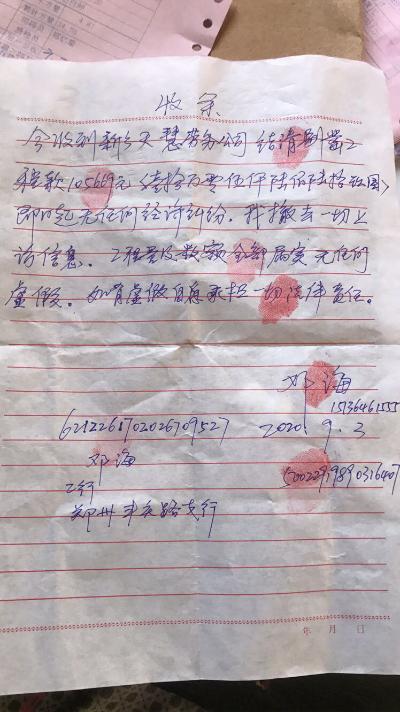 收条
今收到新乡天慧劳务公司结清刷浆工
程款105669元（壹拾万零伍仟陆佰陆拾玖圆）
即日起无任何经济纠纷．我撤去一切上
访信息．工程量及数额全部属实无任何
虚假。如有虚假自愿承担一切法律责任。
邓海
15136461555
6212261702026709527 2020.9.3
邓海
工行
郑州丰庆路支行
年 月 日